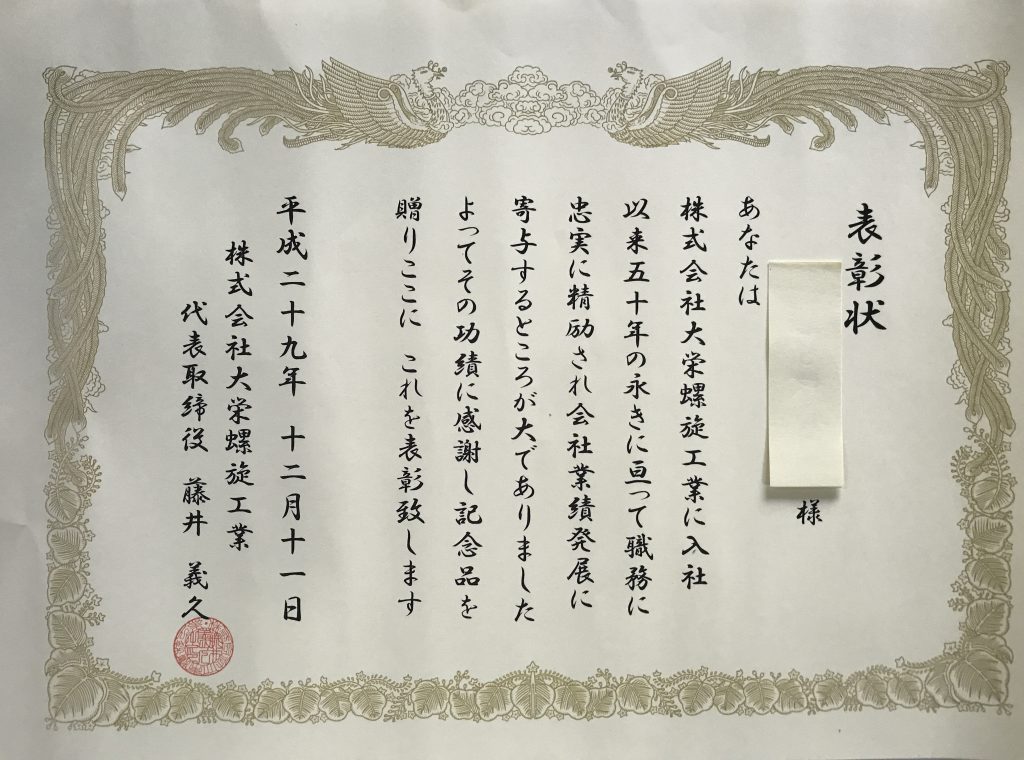 表彰状
様
あなたは
株式会社大栄螺旋工業に入社
以来五十年の永きに亘って職務に
忠実に精励され会社業績発展に
寄与するところが大でありました
よってその功績に感謝し記念品を
贈りここに これを表彰致します
平成二十九年 十二月十一日
株式会社大栄螺旋工業
代表取締役 藤井 義久